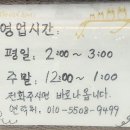 영업시간:
평일: 2:00 ~ 3:00
주말: 12:00 ~ 1:00
전화주시면 바로나옵니다.
연락처. 010-5503-9499